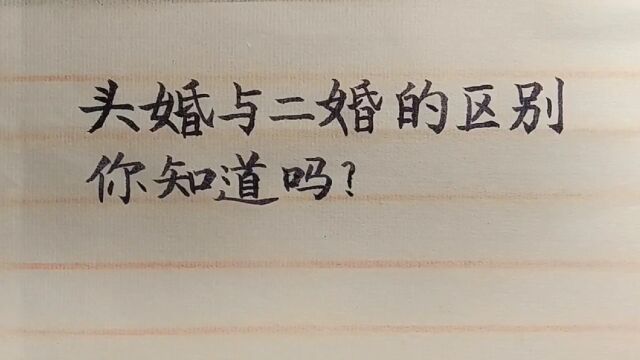 头婚与二婚的区别
你知道吗?